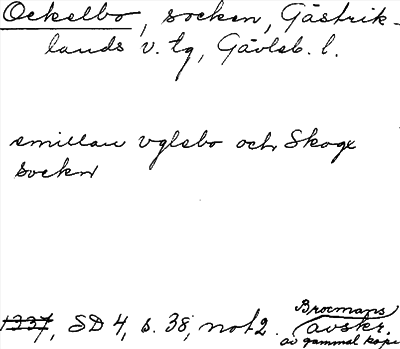 Ockelbo, socken, Gästrik-
lands v. tg, Gävleb. l.
smillan vglsbo och Skogx
sockn
1337, SD 4, s. 38, not 2. Brocmans
avskr.
av gammal kopi